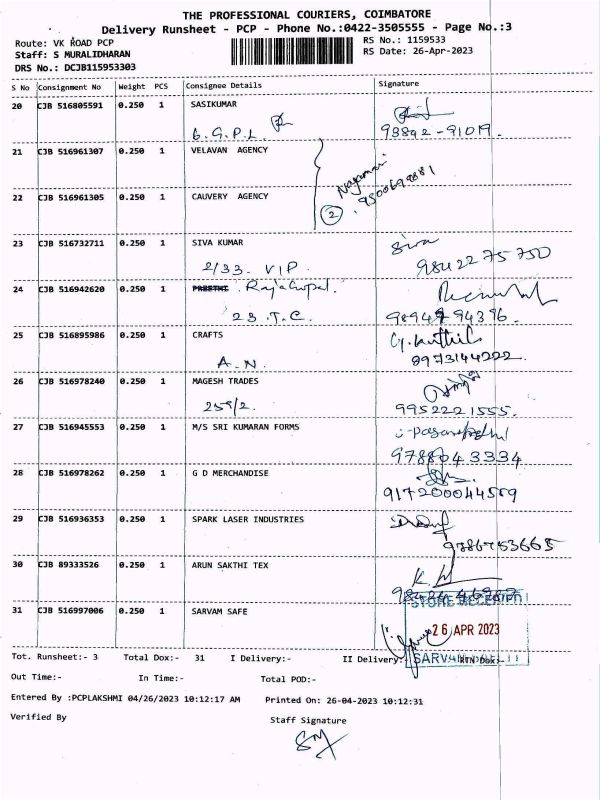 THE PROFESSIONAL COURIERS, COIMBATORE
Delivery Runsheet - PCP - Phone No.:0422-3505555 - Page No.:3
Route: VK ROAD PCP
RS No.: 1159533
Staff: S MURALIDHARAN
RS Date: 26-Apr-2023
DRS No.: DCJB115953303
S No Consignment No Weight PCS Consignee Details Signature
20 CJB 516805591 0.250 1 SASIKUMAR
6.G.P.L. 98842-91019.
21 CJB 516961307 0.250 1 VELAVAN AGENCY
22 CJB 516961305 0.250 1 CAUVERY AGENCY
2
23 CJB 516732711 0.250 1 SIVA KUMAR Siva
2/33. VIP. 98422 75 750
24 CJB 516942620 0.250 1 PREETHI Rajagopal.
23.T.C.
25 CJB 516895986 0.250 1 CRAFTS
A.N. 8973144222.
26 CJB 516978240 0.250 1 MAGESH TRADES
9952221555.
27 CJB 516945553 0.250 1 M/S SRI KUMARAN FORMS
9788043334
28 CJB 516978262 0.250 1 G D MERCHANDISE
917200044509
29 CJB 516936353 0.250 1 SPARK LASER INDUSTRIES
9786753665
30 CJB 89333526 0.250 1 ARUN SAKTHI TEX
STORE RECEIVED
31 CJB 516997006 0.250 1 SARVAM SAFE
26 APR 2023
Tot. Runsheet:- 3 Total Dox:- 31 I Delivery:- II Delivery:- RTN Dox:-
Out Time:- In Time:- Total POD:-
Entered By :PCPLAKSHMI 04/26/2023 10:12:17 AM Printed On: 26-04-2023 10:12:31
Verified By Staff Signature